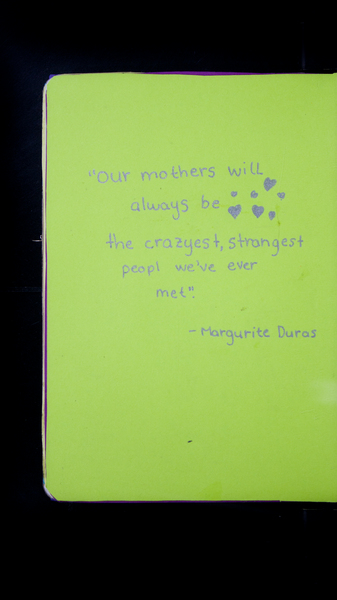 "Our mothers will
always be
the crazyest, strangest
peopl we've ever
met".
- Margurite Duras